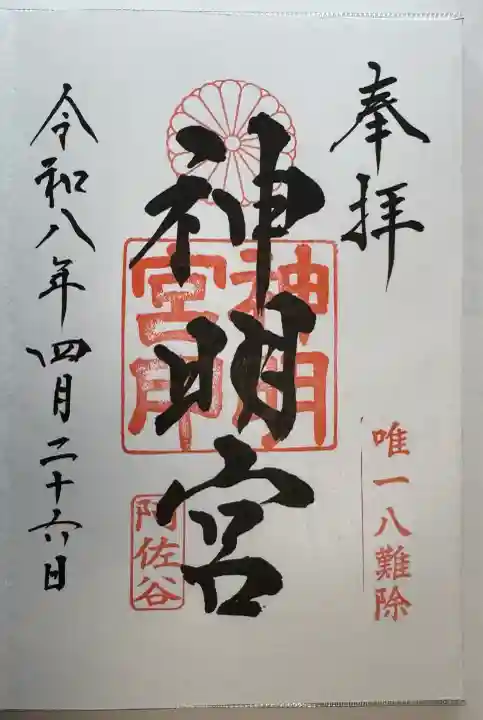 奉拝
唯一八難除
神明宮
神明
宮印
阿佐谷
令和八年四月二十六日